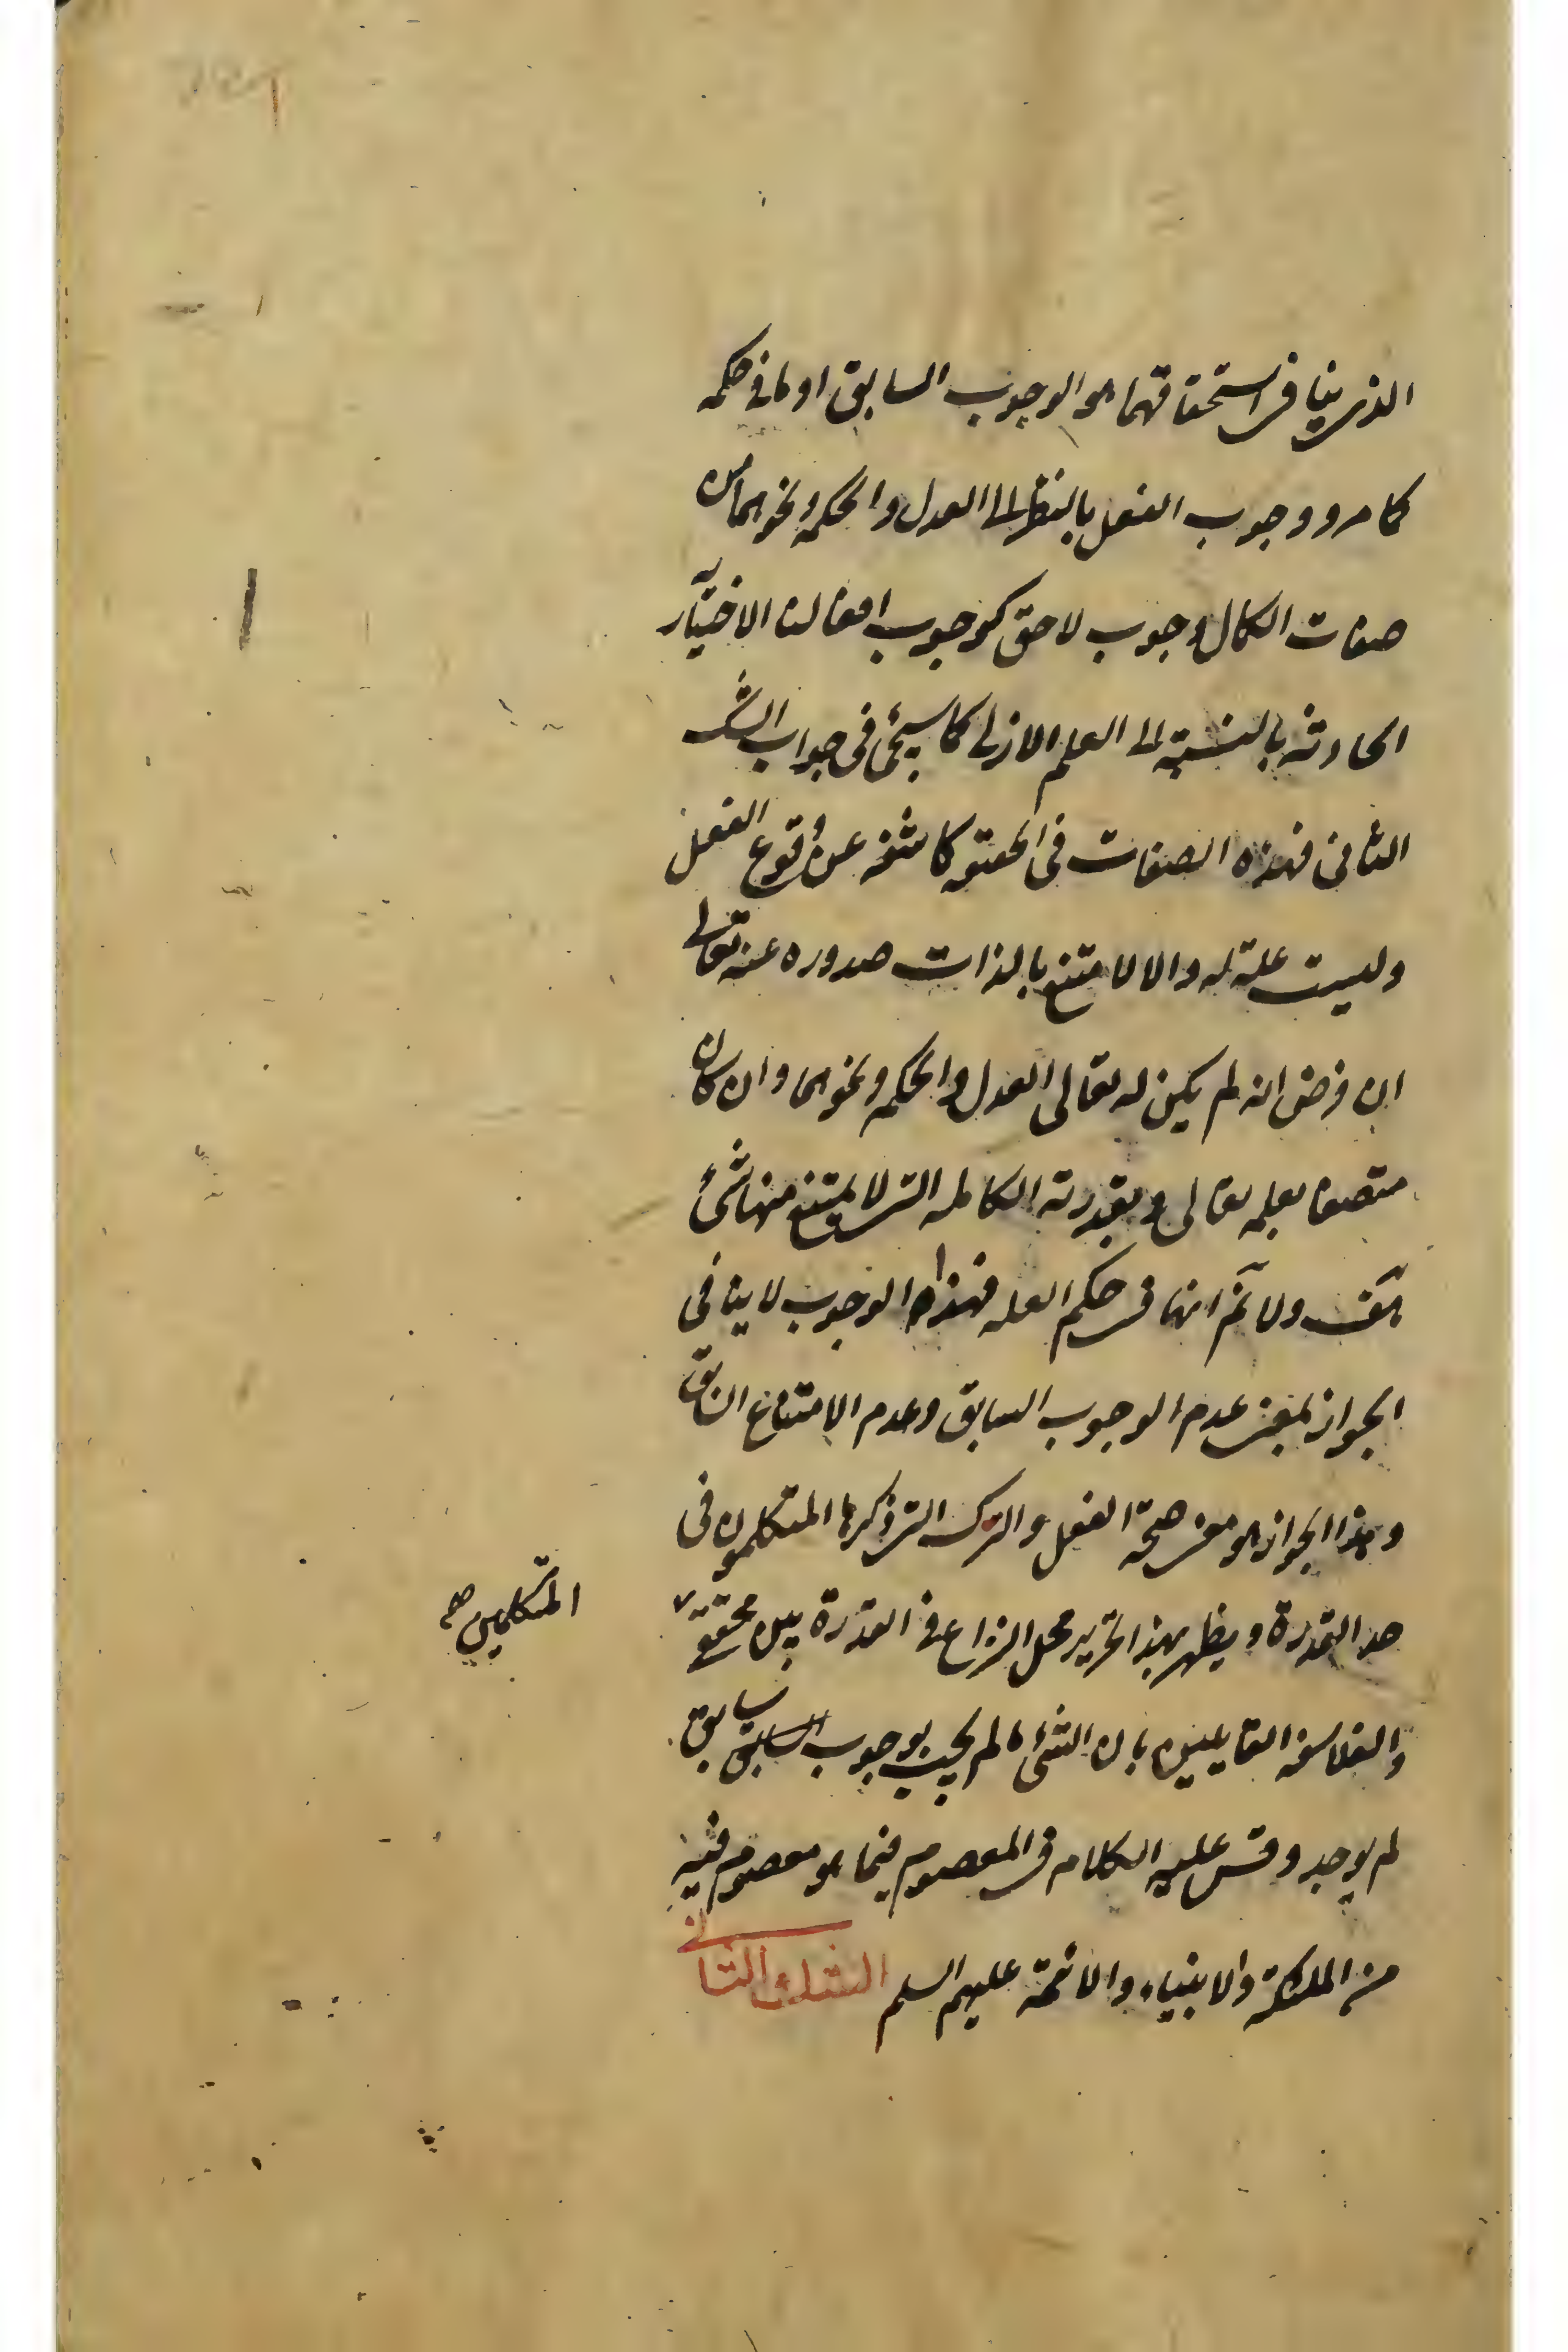 الذي ينافي استحقاقهما هو الوجوب السابق او ما في حكمه
كما مر ووجوب الفعل بالنظر الى العدل والحكمة ونحوهما من
صفات الكمال وجوب لاحق كوجوب افعالنا الاختيارية
الحادثة بالنسبة الى العلم الازلي كما سيجئ في جواب الشك
الثاني فهذه الصفات في الحقيقة كاشفة عن وقوع الفعل
وليست علة له والا لامتنع بالذات صدوره عنه تعالى
ان فرض انه لم يكن له تعالى العدل والحكمة ونحوهما وان كان
متصفا بعلمه تعالى وبقدرته الكاملة التي لا يمتنع منها شئ
هف ولا نم انها في حكم العلة فهذا الوجوب لا ينافي
الجواز بمعنى عدم الوجوب السابق وعدم الامتناع السابق
وهذا الجواز هو معنى صحة الفعل والترك التي ذكرها المتكلمون في
حد القدرة ويظهر بهذا تحرير محل النزاع في القدرة بين محققي
المتكلمين صح
والفلاسفة القايلين بان الشئ ما لم يجب بوجوب سابق
لم يوجد وقس عليه الكلام في المعصوم فيما هو معصوم فيه
من الملئكة والانبياء والائمة عليهم السلم الشك الثاني